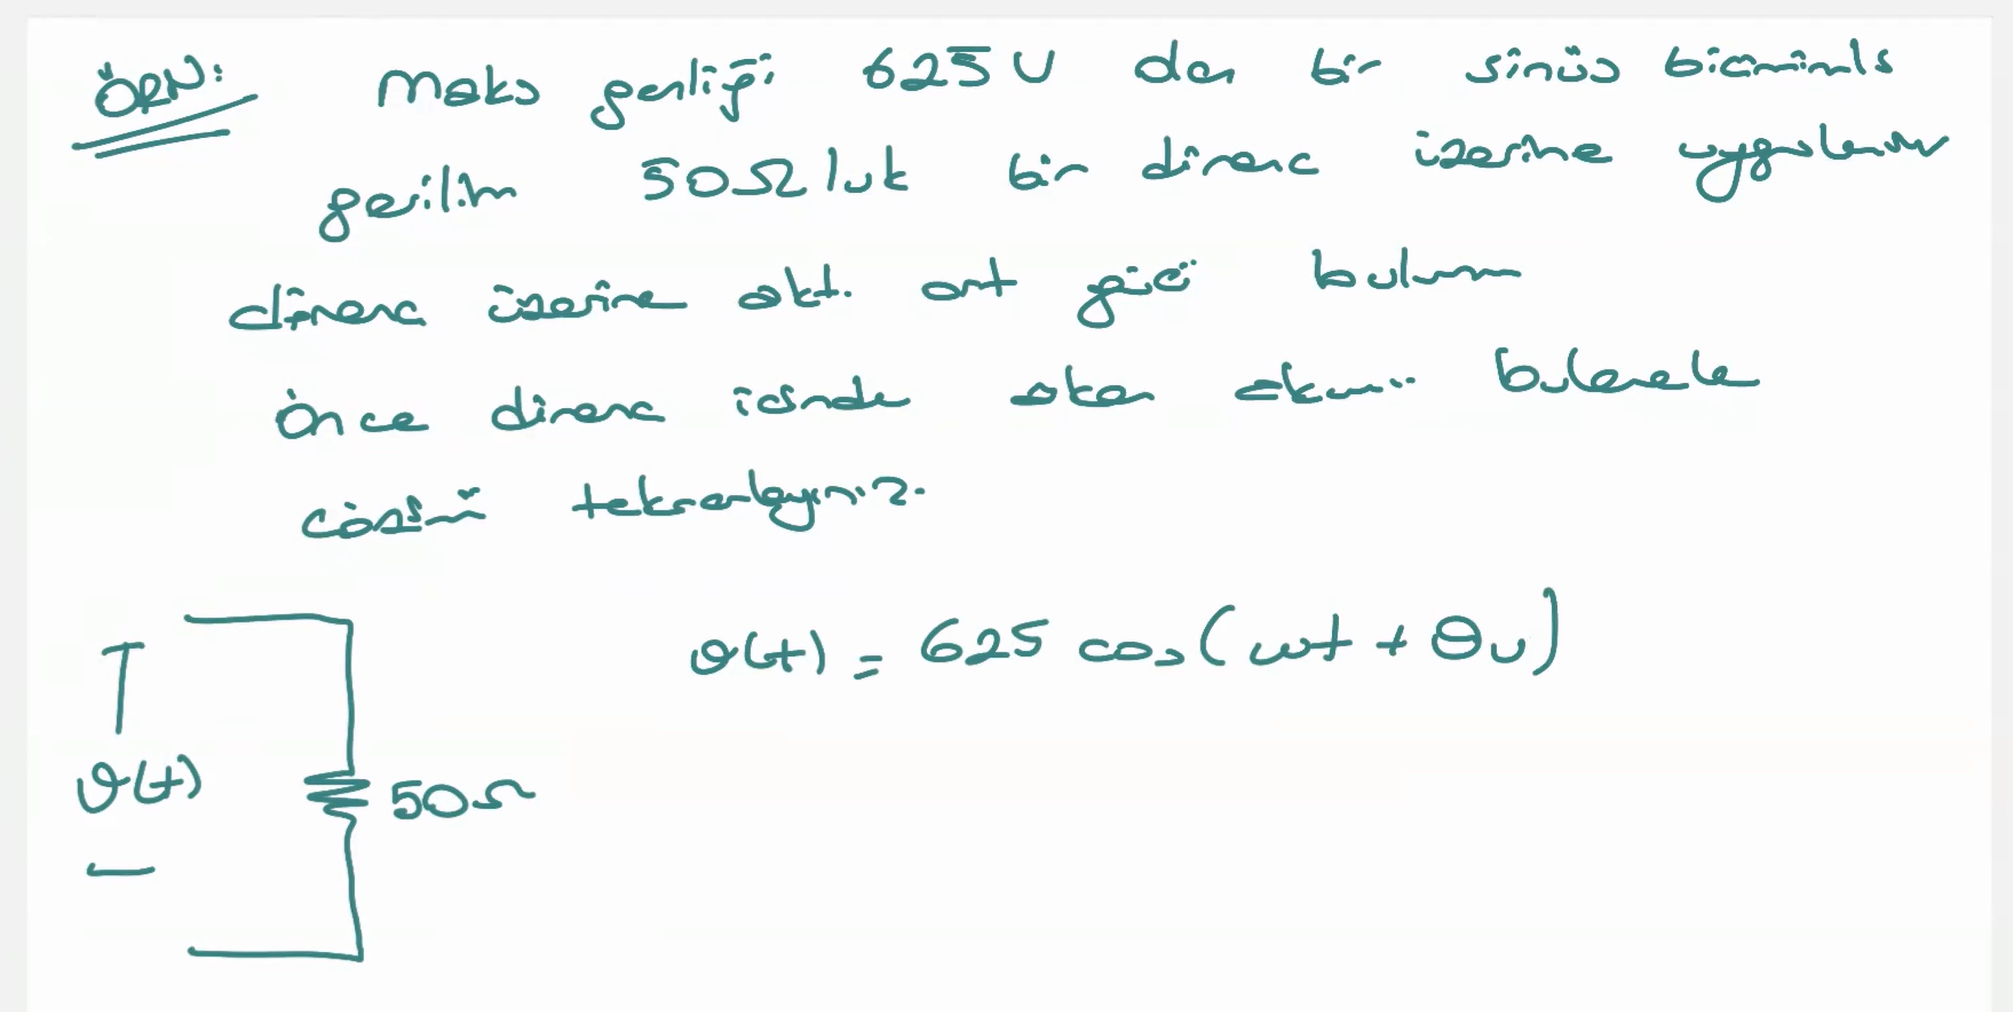 ÖRN: Maks genliği 625 V olan bir sinüs biçimli
gerilim 50Ω luk bir direnc üzerine uygulanır
direnc üzerine akt. ort gücü bulun
Önce direnc içinde akan akımı bularak
çözümü tekrarlayınız.
v(t) = 625 cos(wt + θv)
+
v(t)
50Ω
−